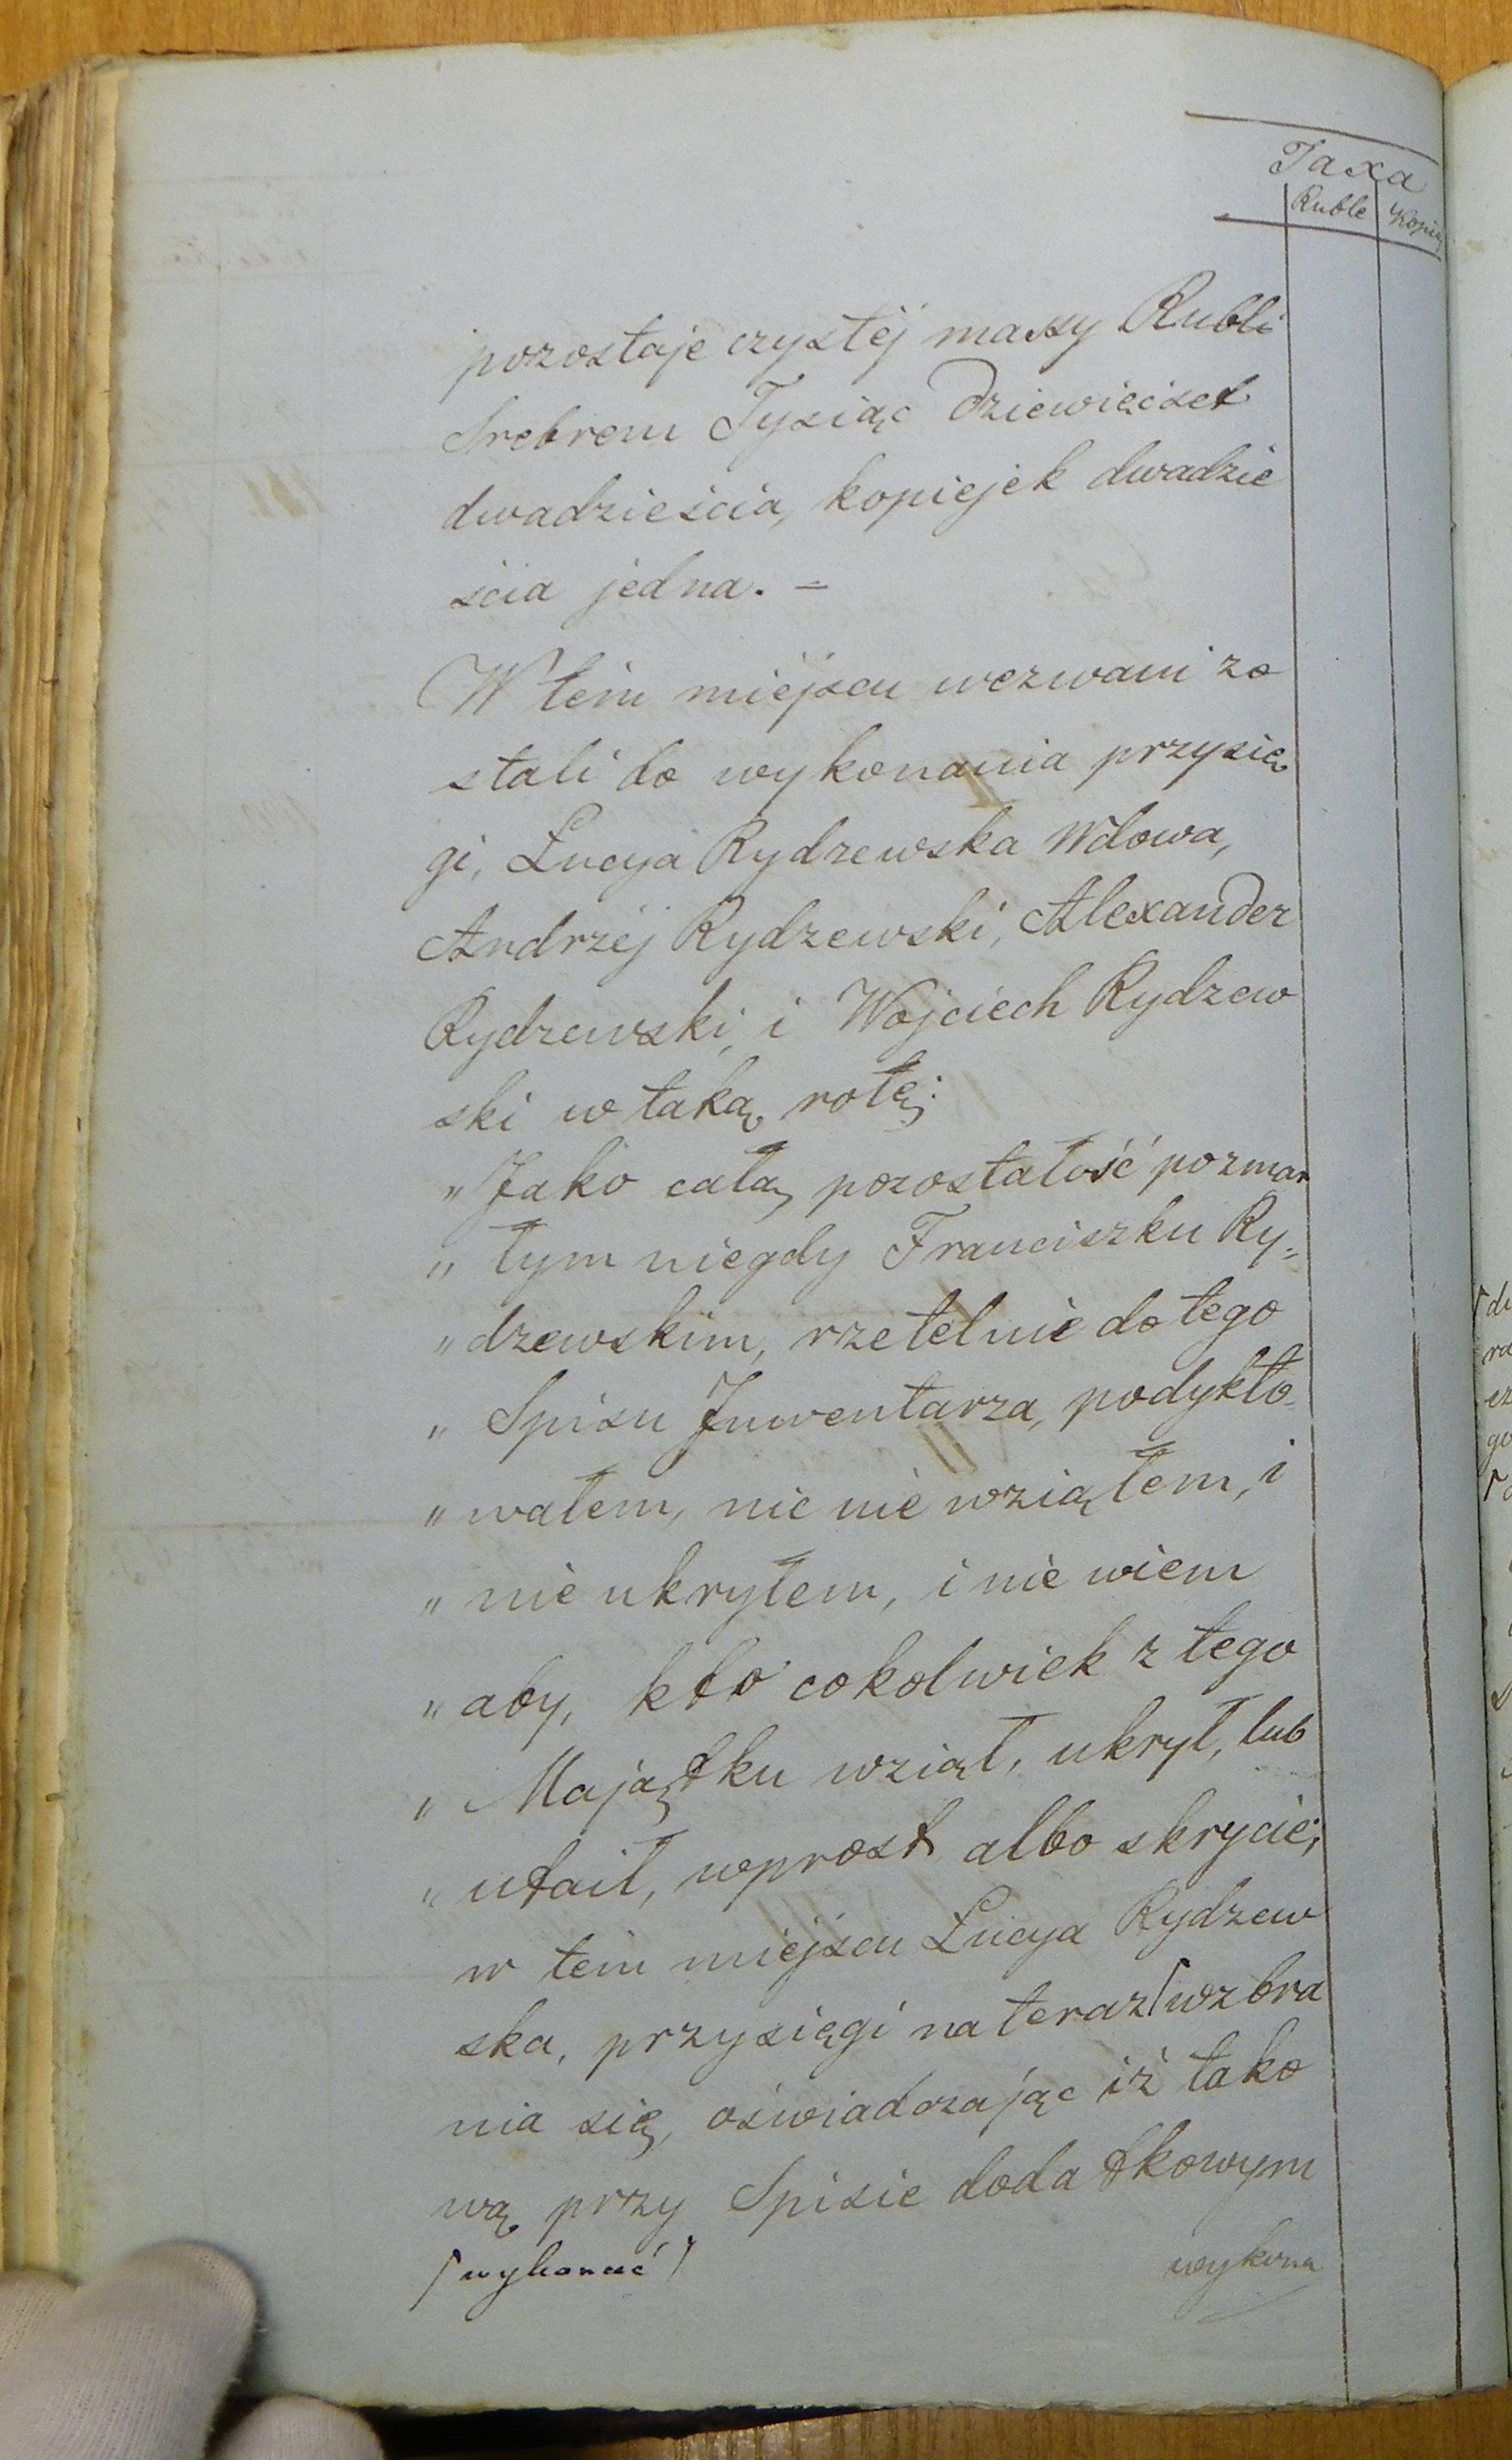 Taxa
Ruble Kopiej
pozostaje czystéj massy Rubli
Srebrem Tysiąc Dziewięćset
dwadzieścia, kopiejek dwadzie
ścia jedna. =
W tém miéjscu wezwani zo
stali do wykonania przysię
gi, Łucyja Rydzewska Wdowa,
Andrzéj Rydzewski, Alexander
Rydzewski, i Wojciech Rydzew
ski w taką rotę;
„ Jako całą pozostałość pozmar
„ łym niegdy Franciszku Ry„
„ dzewskim, rzetelnie do tego
„ Spisu Inwentarza, podykto„
„ wałem, nic nie wziąłem, i
„ nie ukryłem, i nie wiem
„ aby, kto cokolwiek z tego
„ Majątku wziął, ukrył, lub
„ utaił, wprost albo skrycie;
w tém miéjscu Łucya Rydzew
ska, przysięgi na teraz ⌈ wzbra
nia się, oświadczając iż tako
wą przy Spisie dodatkowym
⌈ wykonać ⌉ wykona